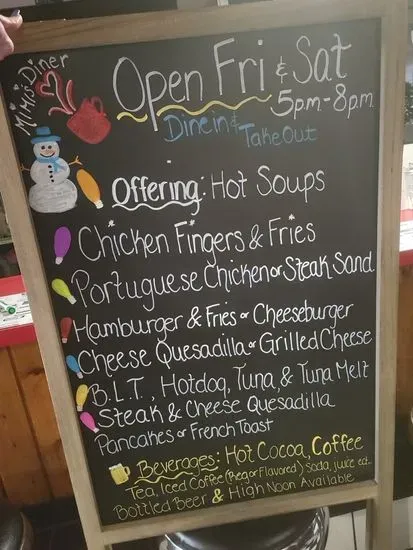 MiMi's Diner
Open Fri & Sat
5pm-8pm
Dine in & Take Out
Offering: Hot Soups
Chicken Fingers & Fries
Portuguese Chicken or Steak Sand
Hamburger & Fries or Cheeseburger
Cheese Quesadilla or Grilled Cheese
B.L.T., Hotdog, Tuna, & Tuna Melt
Steak & Cheese Quesadilla
Pancakes or French Toast
Beverages: Hot Cocoa, Coffee
Tea, Iced Coffee (Reg or Flavored) Soda, juice ect.
Bottled Beer & High Noon Available